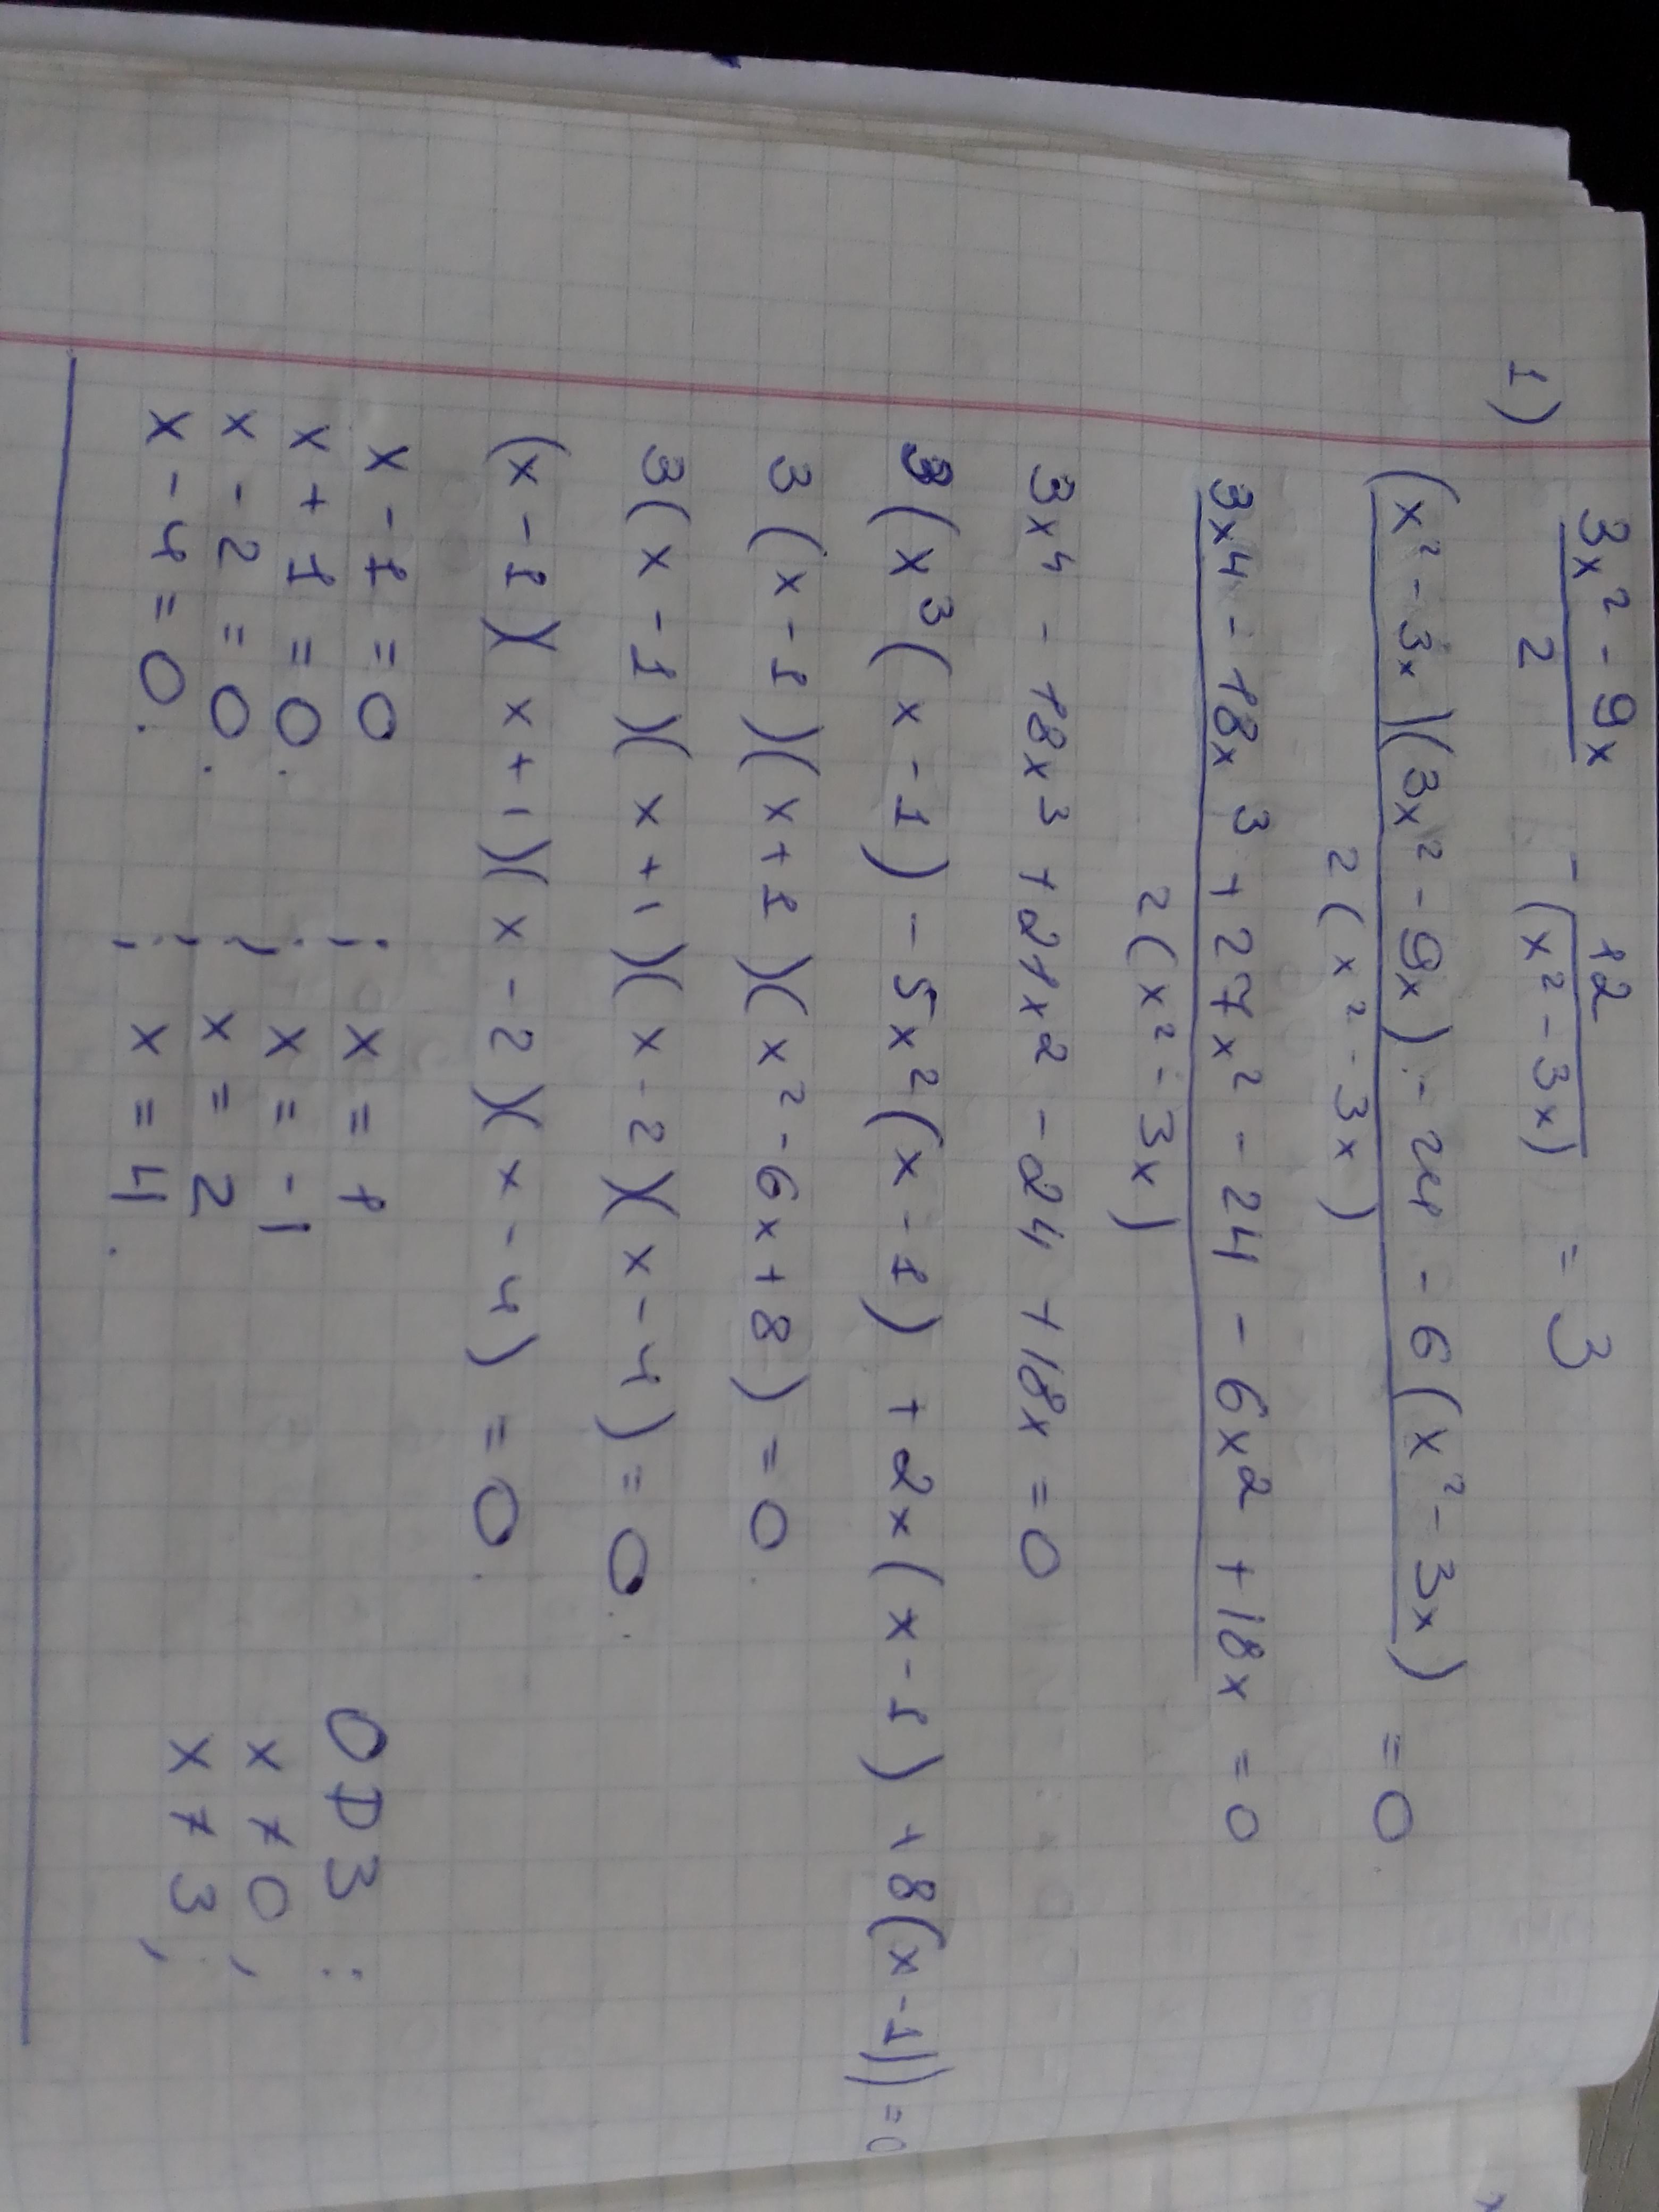 1) (3x² - 9x)/2 - 12/(x² - 3x) = 3
((x² - 3x)(3x² - 9x) - 24 - 6(x² - 3x))/(2(x² - 3x)) = 0
(3x⁴ - 18x³ + 27x² - 24 - 6x² + 18x)/(2(x² - 3x)) = 0
3x⁴ - 18x³ + 21x² - 24 + 18x = 0
3(x³(x - 1) - 5x²(x - 1) + 2x(x - 1) + 8(x - 1)) = 0
3(x - 1)(x + 1)(x² - 6x + 8) = 0
3(x - 1)(x + 1)(x - 2)(x - 4) = 0.
(x - 1)(x + 1)(x - 2)(x - 4) = 0.
x - 1 = 0 ; x = 1
x + 1 = 0. ; x = -1
x - 2 = 0. ; x = 2
x - 4 = 0. ; x = 4.
ОДЗ :
x ≠ 0 ;
x ≠ 3 ;